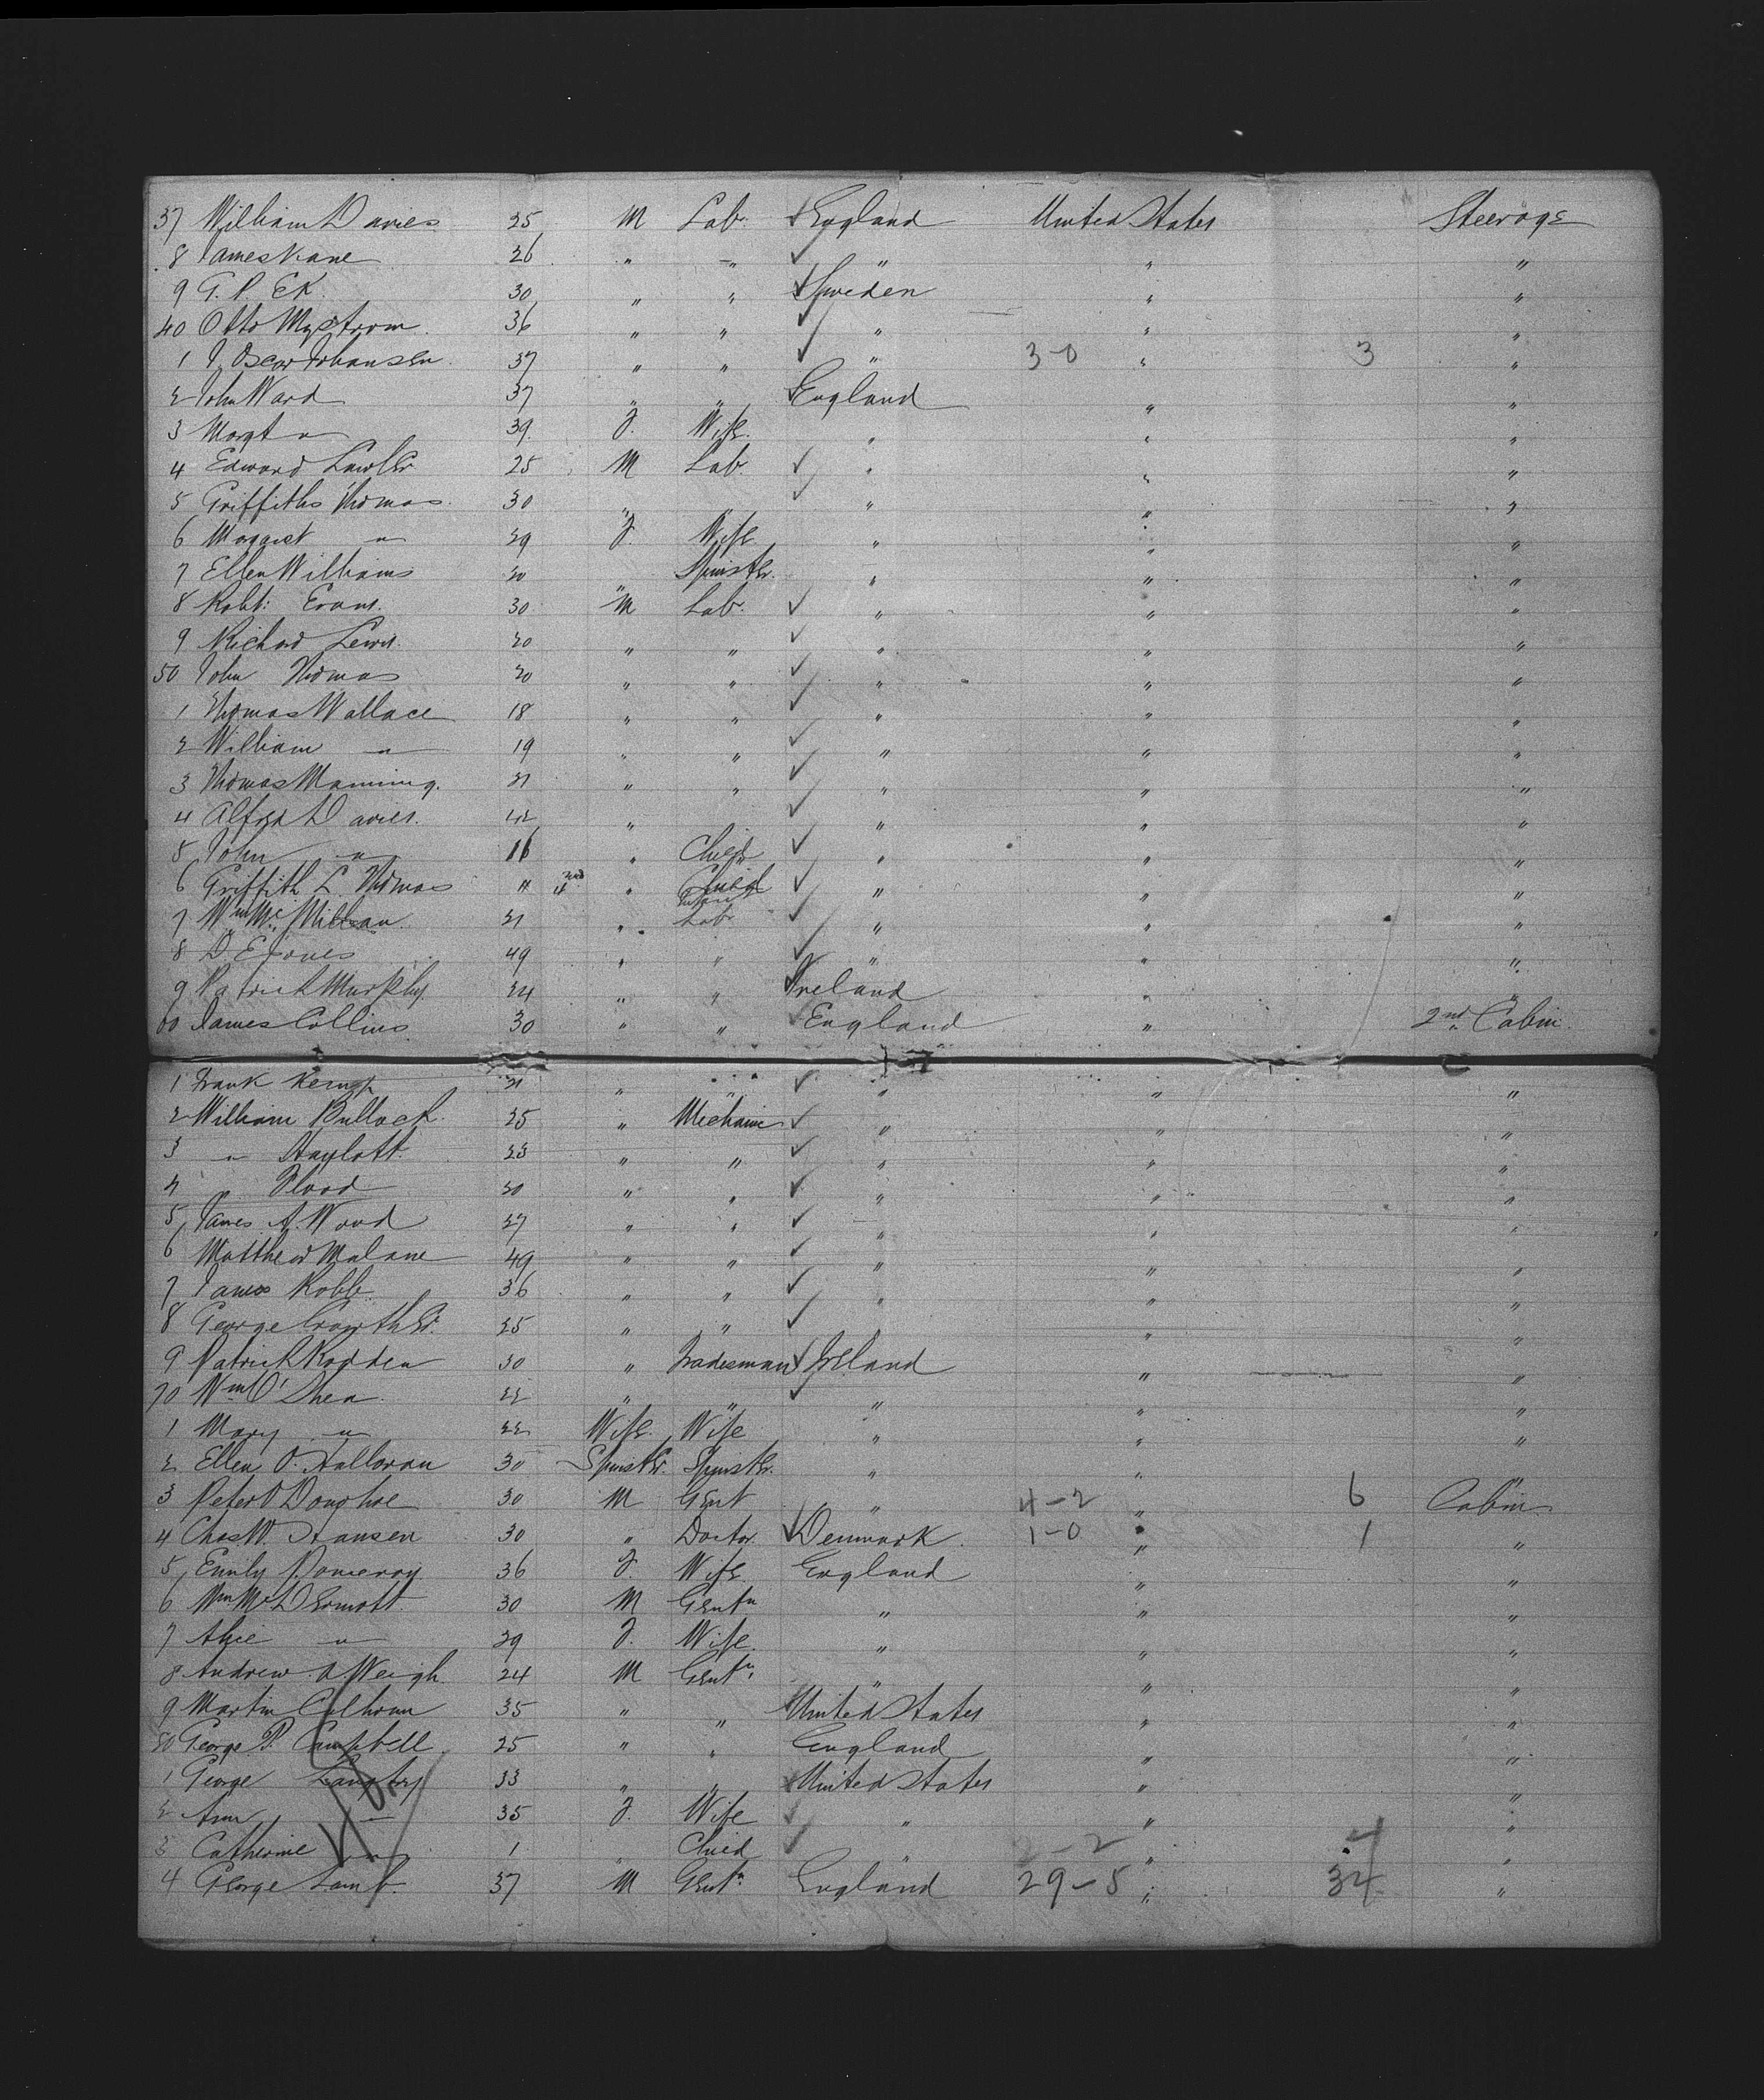 37 William Davies 25 M Lab. England United States Steerage
8 James Kane 26 " " " " "
9 G. P. Ek 30 " " Sweden " "
40 Otto Mystrom 36 " " " " "
1 J. Oscar Johansen 37 " " " 3-0 " 3 "
2 John Ward 37 " " England " "
3 Margt " 39 F. Wife " " "
4 Edward Lawler 25 M Lab. " " "
5 Griffiths Thomas 30 " " " " "
6 Margret " 29 F. Wife " " "
7 Ellen Williams 20 " Spinster " " "
8 Robt. Evans 30 M Lab. " " "
9 Richard Lewis 20 " " " " "
50 John Thomas 20 " " " " "
1 Thomas Wallace 18 " " " " "
2 William " 19 " " " " "
3 Thomas Manning 21 " " " " "
4 Alfred Davies 42 " " " " "
5 John " 16 " Child " " "
6 Griffith L. Thomas " Child Infant " " "
7 Wm. Mc. Millan 21 " Lab. " " "
8 D. E. Jones 49 " " " " "
9 Patrick Murphy 24 " " Ireland " "
60 James Collins 30 " " England " 2nd Cabin
1 Frank Kemp 21 " " " " "
2 William Bullock 25 " Mechanic " " "
3 " Haylott 23 " " " " "
4 " Flood 20 " " " " "
5 James A. Wood 27 " " " " "
6 Matthew Malane 49 " " " " "
7 James Robb 36 " " " " "
8 George Crowther 25 " " " "
9 Patrick Rodden 30 " Tradesman Ireland " "
70 Wm O'Shea 22 " " " " "
1 Mary " 22 Wife Wife " " "
2 Ellen O. Halloran 30 Spinster Spinster " " "
3 Peter O Donohoe 30 M Gent " 4-2 " 6 Cabin
4 Chas. W. Hansen 30 " Doctor Denmark 1-0 " 1 "
5 Emily Pomeroy 36 F. Wife England " "
6 Wm McDermott 30 M Gentn " " "
7 Alice " 29 F. Wife " " "
8 Andrew 24 M Gentn " " "
9 Martin Calhoun 35 " " United States " "
80 George P. Campbell 25 " " England " "
1 George Langtry 33 " " United States " "
2 Ann " 35 F. Wife " " "
3 Catherine " 1 " Child " 2-2 " 4 "
4 George Lamb 37 M Gentn England 29-5 " 34 "